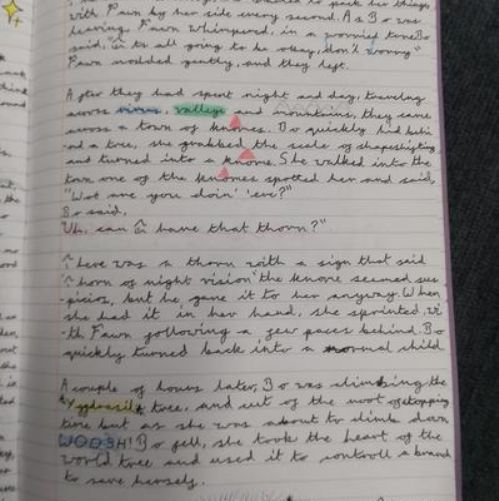 to pack her things,
with Fawn by her side every second. As Bo was
leaving, Fawn whimpered, in a worried tone Bo
said, "it ts all going to be okay, don't worry"
Fawn nodded gently, and they left.
After they had spent night and day, traveling
across rivers, valleys and mountains, they came
across a town of knomes. Bo quickly hid behi
-nd a tree, she grabbed the scale of shapeshifting
and turned into a knome. She walked into the
town one of the knomes spotted her and said,
"Wot are you doin' 'ere?"
Bo said,
"Uh, can I have that thorn?"
There was a thorn with a sign that said
'Thorn of night vision' the knome seemed sus
-picios, but he gave it to her anyway. When
she had it in her hand, she sprinted wi
-th Fawn following a few paces behind. Bo
quickly turned back into a normal child
A couple of hours later, Bo was climbing the
Yggdrasil tree, and cut of the root of stopping
time but as she was about to climb down
WOOSH! Bo fell, she took the heart of the
world tree and used it to controll a branch
to save herself.